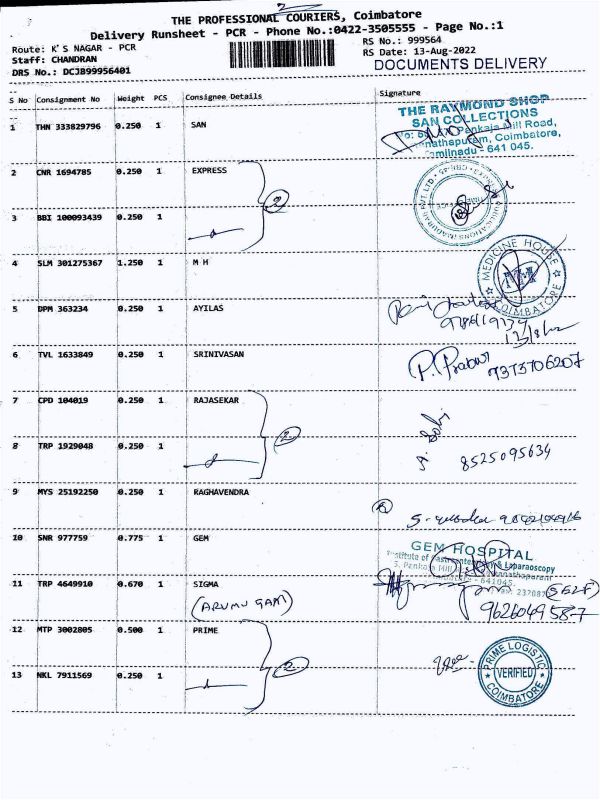 2
THE PROFESSIONAL COURIERS, Coimbatore
Delivery Runsheet - PCR - Phone No.:0422-3505555 - Page No.:1
Route: K'S NAGAR - PCR
RS No.: 999564
Staff: CHANDRAN
RS Date: 13-Aug-2022
DRS No.: DCJ899956401
DOCUMENTS DELIVERY
S No Consignment No Weight PCS Consignee Details Signature
1 THN 333829796 0.250 1 SAN
THE RAYMOND SHOP
SAN COLLECTIONS
Pankaja Mill Road,
Coimbatore,
641 045.
2 CNR 1694785 0.250 1 EXPRESS
2
3 BBI 100093439 0.250 1
4 SLM 301275367 1.250 1 M H
MEDICINE HOUSE
MM
COIMBATORE
5 DPM 363234 0.250 1 AYILAS
13/8/22
6 TVL 1633849 0.250 1 SRINIVASAN
P. Prabu
7373706207
7 CPD 104019 0.250 1 RAJASEKAR
2
8 TRP 1929048 0.250 1
8525095634
9 MYS 25192250 0.250 1 RAGHAVENDRA
10 SNR 977759 0.775 1 GEM
GEM HOSPITAL
& Laparaoscopy
11 TRP 4649910 0.670 1 SIGMA
(ARUMUGAM)
(SELF)
9626049587
12 MTP 3002805 0.500 1 PRIME
2
PRIME LOGISTIC
VERIFIED
COIMBATORE
13 NKL 7911569 0.250 1